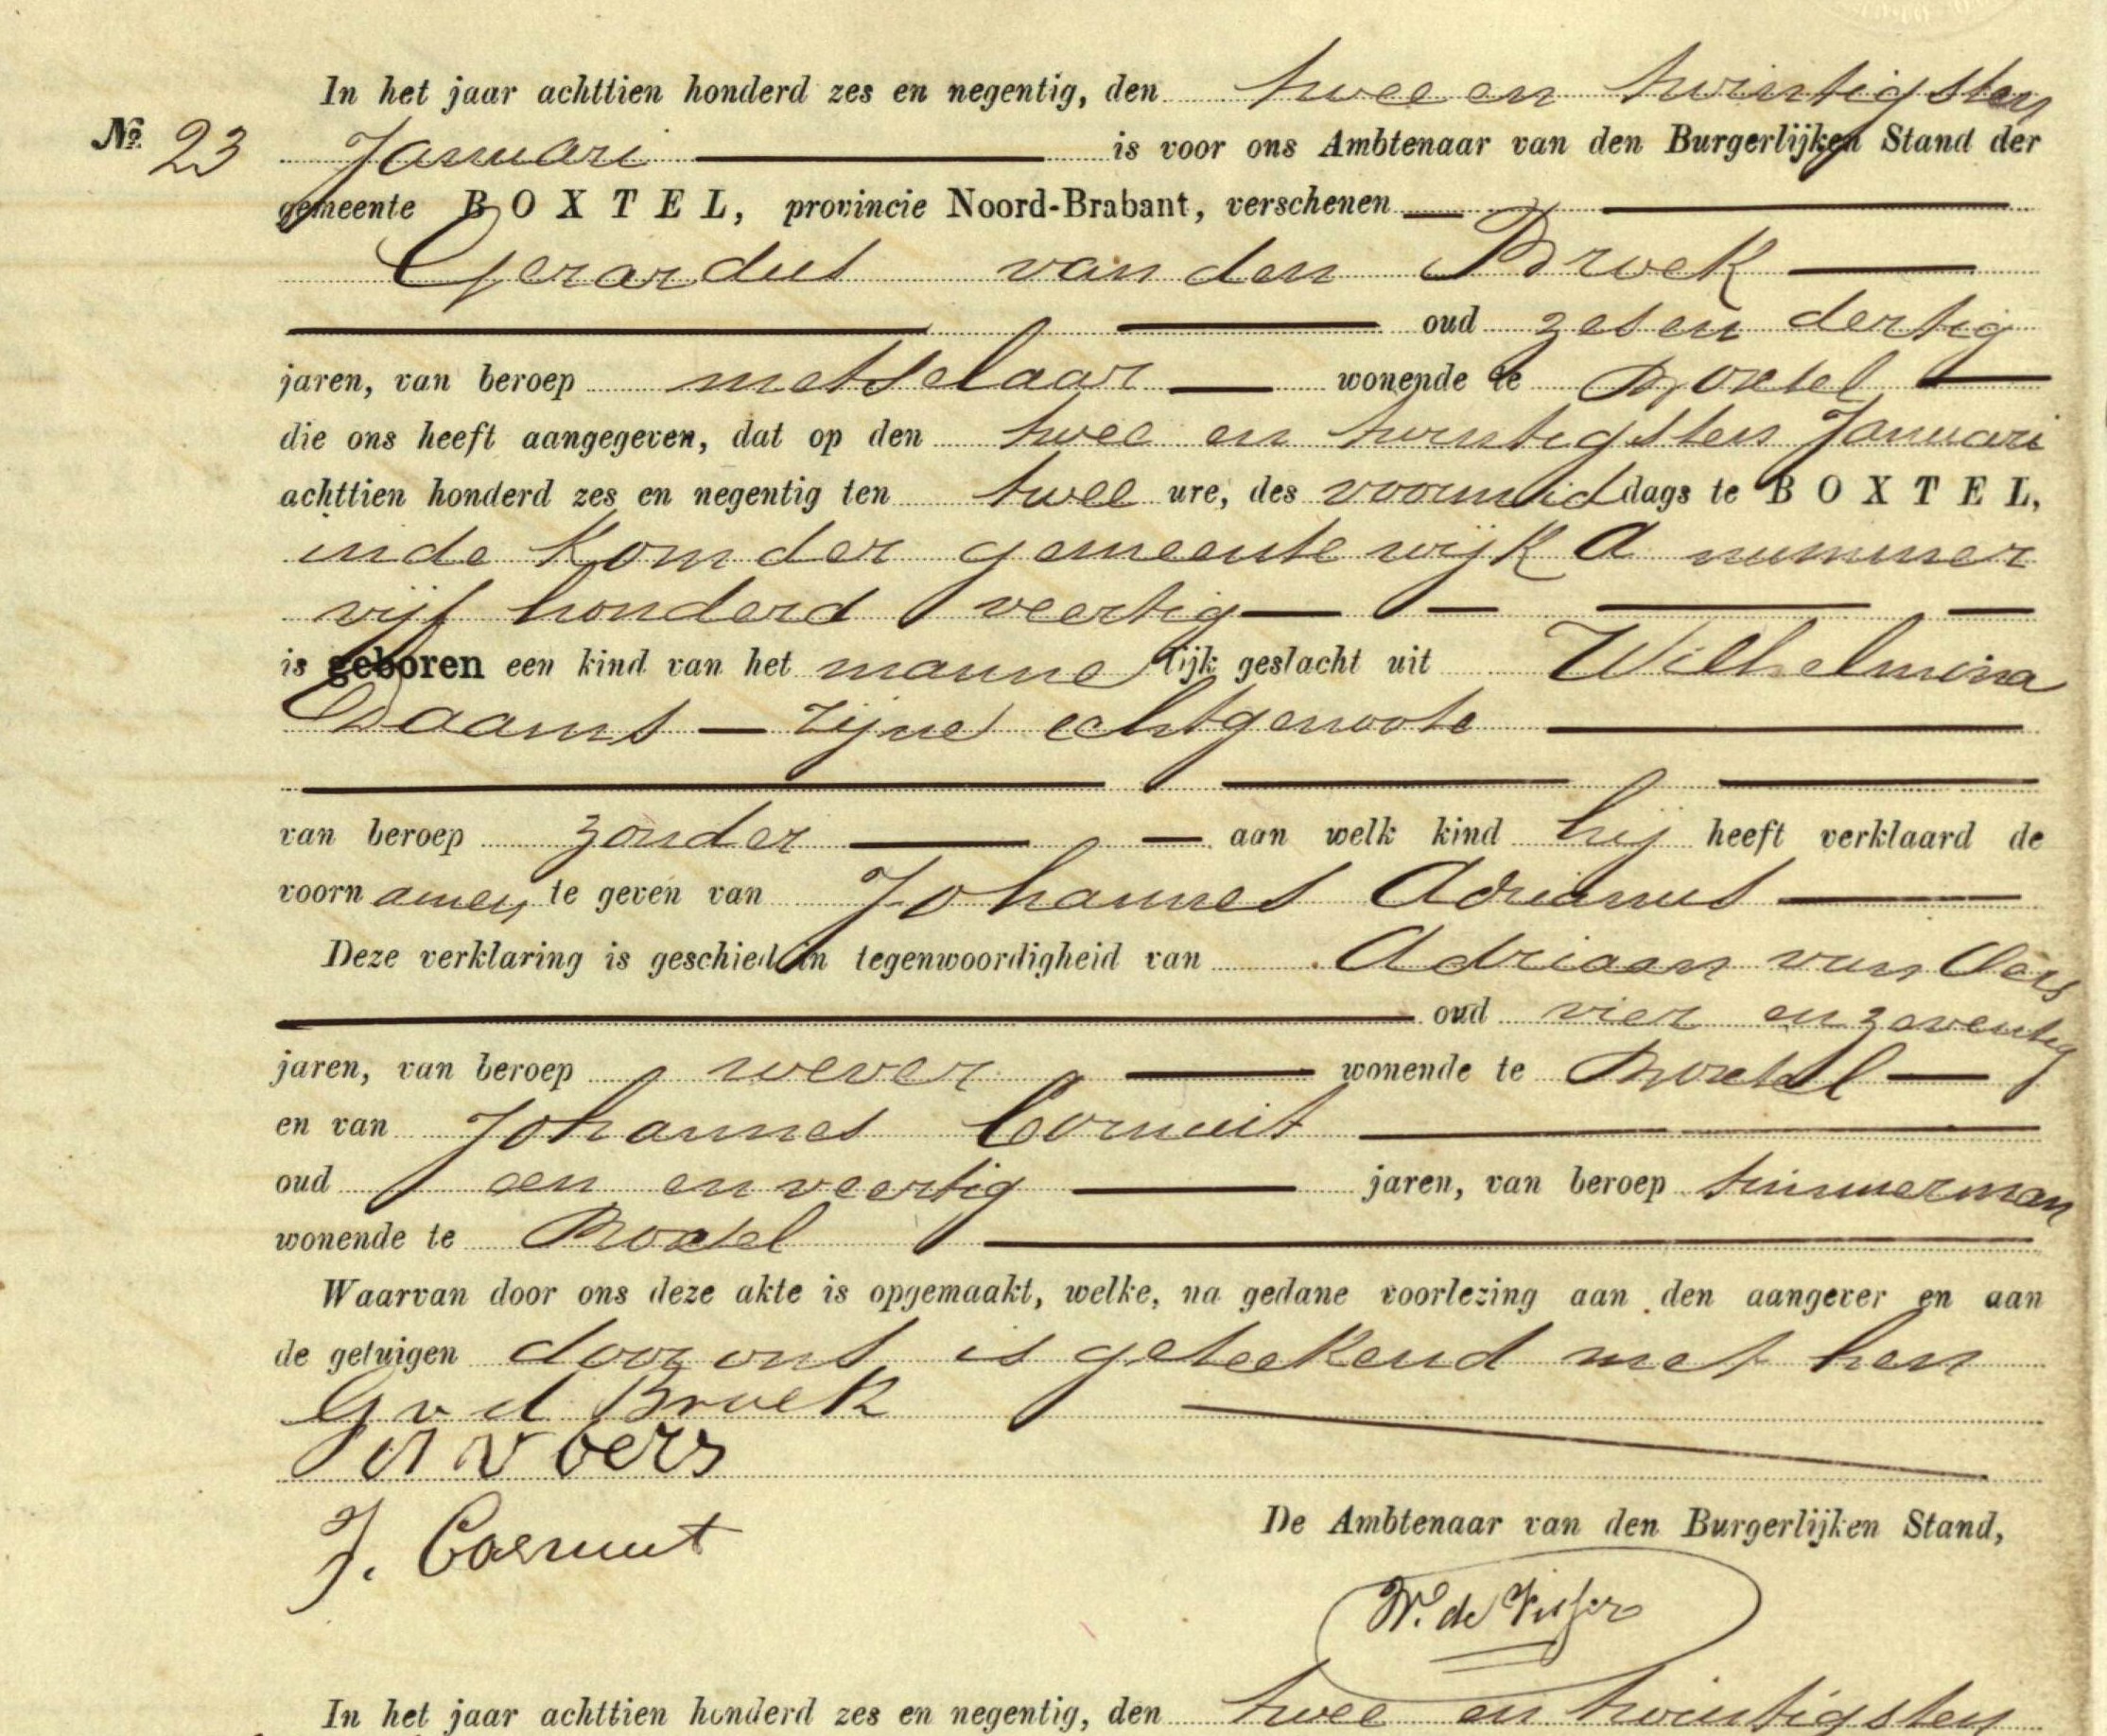 In het jaar achttien honderd zes en negentig, den twee en twintigsten
№ 23 Januari is voor ons Ambtenaar van den Burgerlijken Stand der
gemeente BOXTEL, provincie Noord-Brabant, verschenen
Gerardus van den Broek
oud zes en dertig
jaren, van beroep metselaar wonende te Boxtel
die ons heeft aangegeven, dat op den twee en twintigsten Januari
achttien honderd zes en negentig ten twee ure, des voormiddags te BOXTEL,
in de Kom der gemeente wijk A nummer
vijf honderd veertig
is geboren een kind van het mannelijk geslacht uit Wilhelmina
Daams zijne echtgenoote
van beroep zonder aan welk kind hij heeft verklaard de
voornamen te geven van Johannes Adrianus
Deze verklaring is geschied in tegenwoordigheid van Adriaan van Oers
oud vier en zeventig
jaren, van beroep wever wonende te Boxtel
en van Johannes Cornuit
oud een en veertig jaren, van beroep timmerman
wonende te Boxtel
Waarvan door ons deze akte is opgemaakt, welke, na gedane voorlezing aan den aangever en aan
de getuigen door ons is geteekend met hen
G v d Broek
A v Oers
J. Coernuut
De Ambtenaar van den Burgerlijken Stand,
W. de Visser
In het jaar achttien honderd zes en negentig, den twee en twintigsten